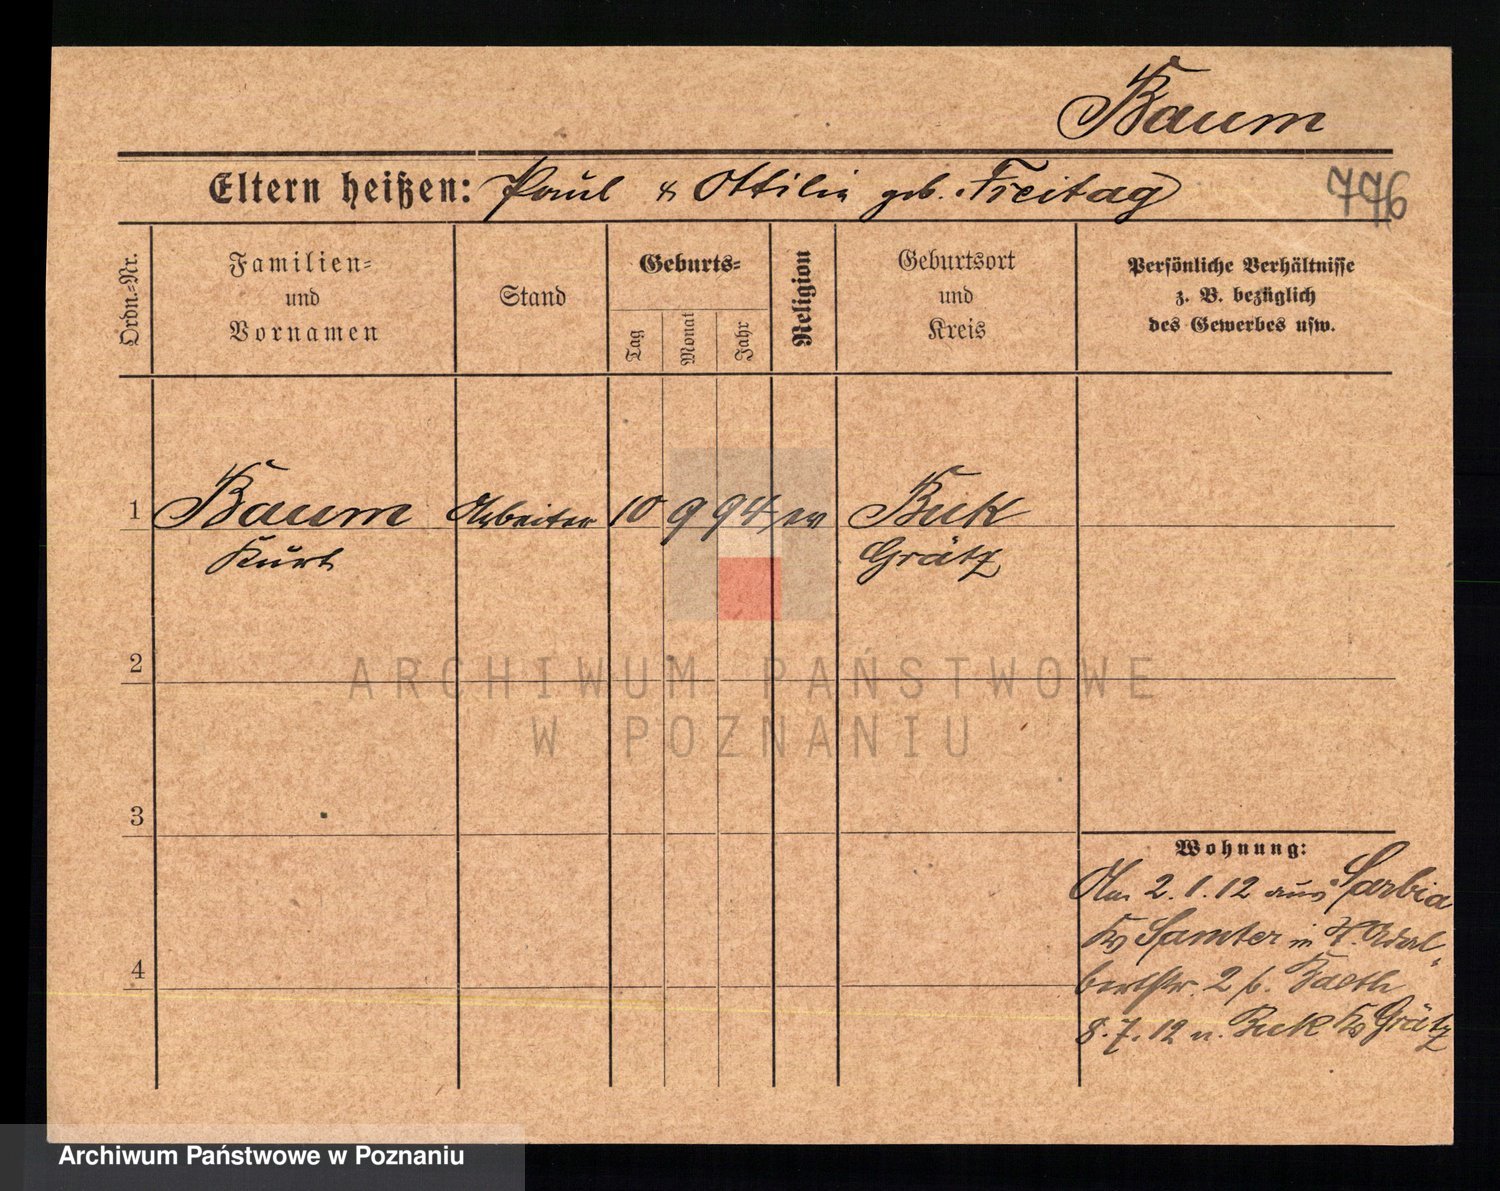 Baum
Eltern heißen: Paul & Ottilie geb. Freitag
776
Ordn.-Nr.
Familien-
und
Vornamen
Stand
Geburts-
Tag
Monat
Jahr
Religion
Geburtsort
und
Kreis
Persönliche Verhältnisse
z. B. bezüglich
des Gewerbes usw.
1 Baum Arbeiter 10 9 94 ev Buk
Kurt Grätz
2
3
4
Wohnung:
Am 2.1.12 aus Sarbia
Kr Samter in Adal-
bertstr. 2 b.
8.7.12 n. Buk Kr Grätz
ARCHIWUM PAŃSTWOWE
W POZNANIU
Archiwum Państwowe w Poznaniu